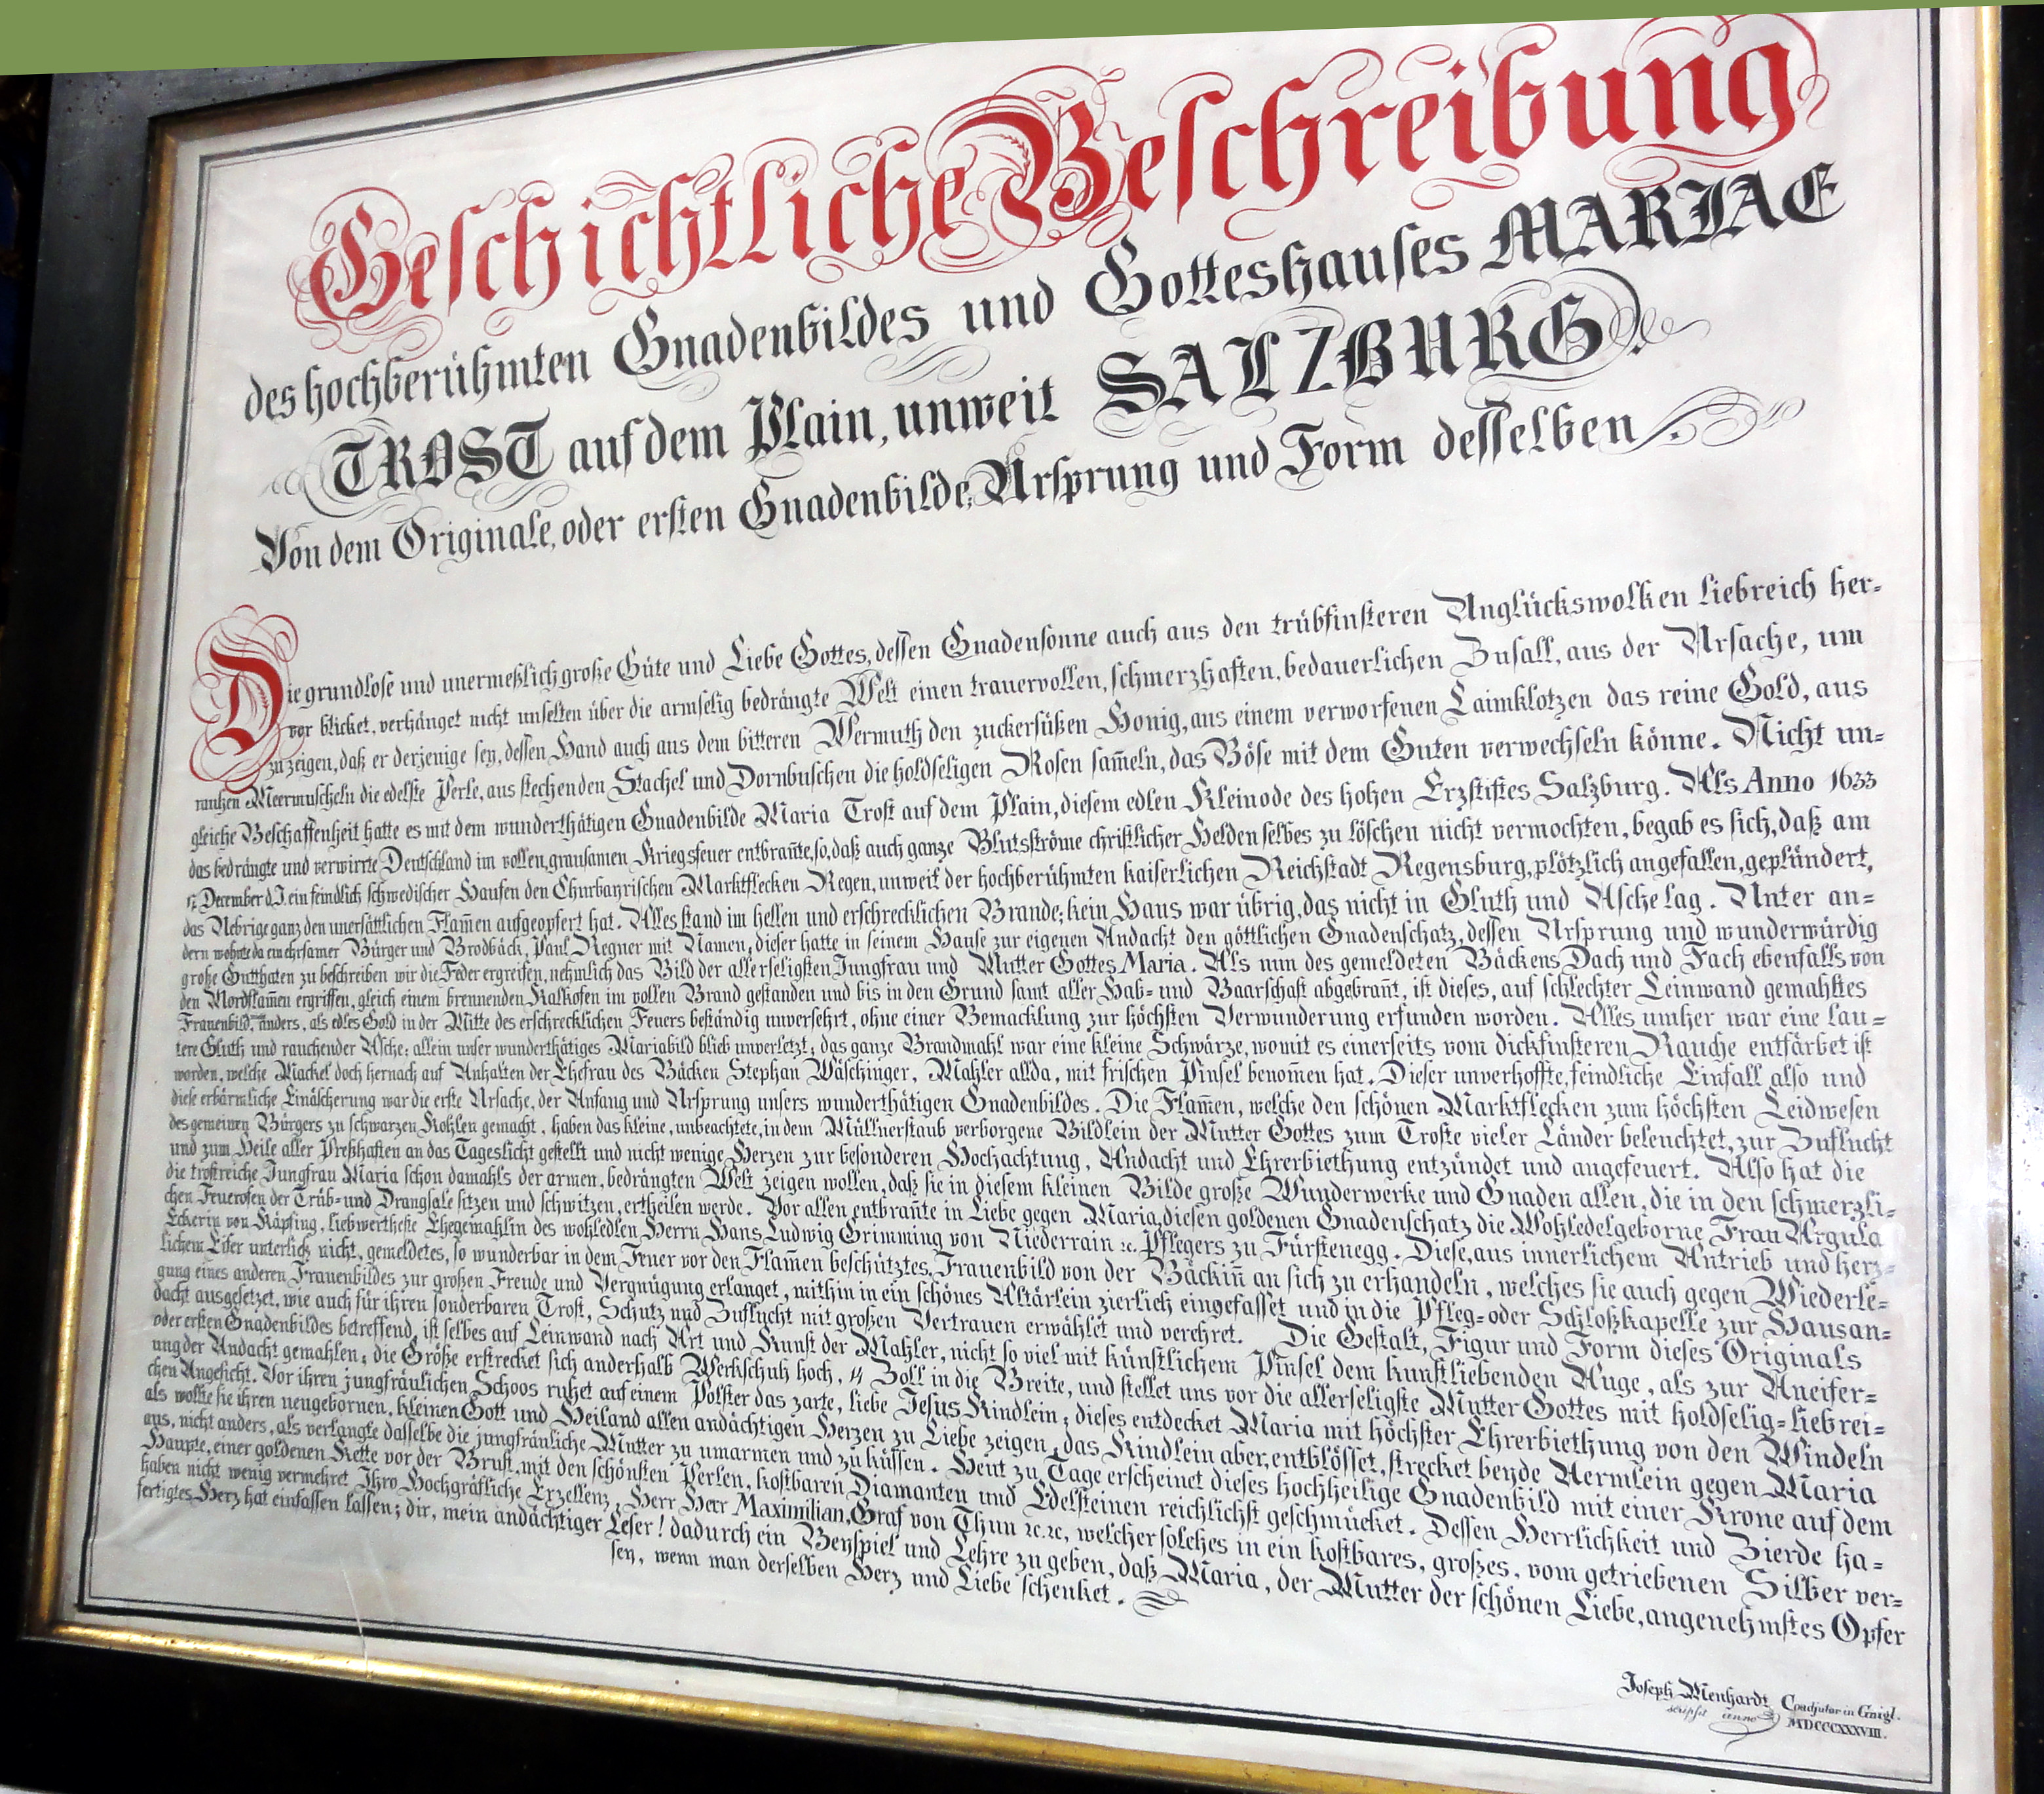 Geschichtliche Beschreibung
des hochberühmten Gnadenbildes und Gotteshauses MARIAE
TROST auf dem Plain, unweit SALZBURG.
Von dem Originale, oder ersten Gnadenbilde, Ursprung und Form desselben.
Die grundlose und unermeßlich große Güte und Liebe Gottes, dessen Gnadensonne auch aus den trübfinsteren Unglückswolken liebreich her-
vor blicket, verhänget nicht unselten über die armselig bedrängte Welt einen trauervollen, schmerzhaften, bedauerlichen Zufall, aus der Ursache, um
zu zeigen, daß er derjenige sey, dessen Hand auch aus dem bitteren Wermuth den zuckersüßen Honig, aus einem verworfenen Laimklotzen das reine Gold, aus
rauhen Meermuscheln die edelste Perle, aus stechenden Stachel und Dornbuschen die holdseligen Rosen sam̄eln, das Böse mit dem Guten verwechseln könne. Nicht un-
gleiche Beschaffenheit hatte es mit dem wunderthätigen Gnadenbilde Maria Trost auf dem Plain, diesem edlen Kleinode des hohen Erzstiftes Salzburg. Als Anno 1633
das bedrängte und verwirrte Deutschland im vollen, grausamen Kriegsfeuer entbran̄te, so, daß auch ganze Blutsströme christlicher Helden selbes zu löschen nicht vermochten, begab es sich, daß am
December d. J. ein feindlich schwedischer Haufen den Churbayrischen Marktflecken Regen, unweit der hochberühmten kaiserlichen Reichstadt Regensburg, plötzlich angefallen, geplündert,
das Uebrige ganz den unersättlichen Flam̄en aufgeopfert hat. Alles stand im hellen und erschrecklichen Brande; kein Haus war übrig, das nicht in Gluth und Asche lag. Unter an-
dern wohnte da ein ehrsamer Bürger und Brodbäck, Paul Regner mit Namen, dieser hatte in seinem Hause zur eigenen Andacht den göttlichen Gnadenschatz, dessen Ursprung und wunderwürdig
große Gutthaten zu beschreiben wir die Feder ergreifen, nehmlich das Bild der allerseligsten Jungfrau und Mutter Gottes Maria. Als nun des gemeldeten Bäckens Dach und Fach ebenfalls von
den Mordflam̄en ergriffen, gleich einem brennenden Kalkofen im vollen Brand gestanden und bis in den Grund samt aller Hab- und Baarschaft abgebran̄t, ist dieses, auf schlechter Leinwand gemahltes
Frauenbild, anders, als edles Gold in der Mitte des erschrecklichen Feuers beständig unversehrt, ohne einer Bemacklung zur höchsten Verwunderung erfunden worden. Alles umher war eine lau-
tere Gluth und rauchender Asche; allein unser wunderthätiges Mariabild blieb unverletzt; das ganze Brandmahl war eine kleine Schwärze, womit es einerseits vom dickfinsteren Rauche entfärbet ist
worden, welche Mackel doch hernach auf Anhalten der Ehefrau des Bäcken Stephan Wäschinger, Mahler allda, mit frischen Pinsel benom̄en hat. Dieser unverhoffte, feindliche Einfall also und
diese erbärmliche Einäscherung war die erste Ursache, der Anfang und Ursprung unsers wunderthätigen Gnadenbildes. Die Flam̄en, welche den schönen Marktflecken zum höchsten Leidwesen
des gemeinen Bürgers zu schwarzen Kohlen gemacht, haben das kleine, unbeachtete, in dem Müllnerstaub verborgene Bildlein der Mutter Gottes zum Troste vieler Länder beleuchtet, zur Zuflucht
und zum Heile aller Preßhaften an das Tageslicht gestellt und nicht wenige Herzen zur besonderen Hochachtung, Andacht und Ehrerbiethung entzündet und angefeuert. Also hat die
die trostreiche Jungfrau Maria schon damahls der armen, bedrängten Welt zeigen wollen, daß sie in diesem kleinen Bilde große Wunderwerke und Gnaden allen, die in den schmerzli-
chen Feuerofen der Trüb- und Drangsale sitzen und schwitzen, ertheilen werde. Vor allen entbran̄te in Liebe gegen Maria, diesen goldenen Gnadenschatz die Wohledelgeborne Frau Argula
Eckerin von Käpfing, liebwertheste Ehegemahlin des wohledlen Herrn Hans Ludwig Grimming von Niederrain ꝛc. Pflegers zu Fürstenegg. Diese, aus innerlichem Antrieb und herz-
lichem Eifer unterließ nicht, gemeldetes, so wunderbar in dem Feuer vor den Flam̄en beschütztes, Frauenbild von der Bäckin̄ an sich zu erhandeln, welches sie auch gegen Wiederle-
gung eines anderen Frauenbildes zur großen Freude und Vergnügung erlanget, mithin in ein schönes Altärlein zierlich eingefasset und in die Pfleg- oder Schloßkapelle zur Hausan-
dacht ausgesetzet, wie auch für ihren sonderbaren Trost, Schutz und Zuflucht mit großen Vertrauen erwählet und verehret. Die Gestalt, Figur und Form dieses Originals
oder ersten Gnadenbildes betreffend, ist selbes auf Leinwand nach Art und Kunst der Mahler, nicht so viel mit künstlichem Pinsel dem kunstliebenden Auge, als zur Aneifer-
ung der Andacht gemahlen; die Größe erstrecket sich anderhalb Werkschuh hoch, Zoll in die Breite, und stellet uns vor die allerseligste Mutter Gottes mit holdselig-liebrei-
chen Angesicht. Vor ihren jungfräulichen Schoos ruhet auf einem Polster das zarte, liebe Jesus Kindlein; dieses entdecket Maria mit höchster Ehrerbiethung von den Windeln
als wollte sie ihren neugebornen, kleinen Gott und Heiland allen andächtigen Herzen zu Liebe zeigen, das Kindlein aber, entblösset, strecket beyde Aermlein gegen Maria
aus, nicht anders, als verlangte dasselbe die jungfräuliche Mutter zu umarmen und zu küssen. Heut zu Tage erscheinet dieses hochheilige Gnadenbild mit einer Krone auf dem
Haupte, einer goldenen Kette vor der Brust, mit den schönsten Perlen, kostbaren Diamanten und Edelsteinen reichlichst geschmücket. Dessen Herrlichkeit und Zierde ha-
haben nicht wenig vermehret Ihro Hochgräfliche Exzellenz, Herr Herr Maximilian, Graf von Thun ꝛc. ꝛc, welcher solches in ein kostbares, großes, vom getriebenen Silber ver-
fertigtes Herz hat einfassen lassen; dir, mein andächtiger Leser! dadurch ein Beyspiel und Lehre zu geben, daß Maria, der Mutter der schönen Liebe, angenehmstes Opfer
sey, wenn man derselben Herz und Liebe schenket.
Joseph Menhardt, Coadjutor in Gnigl.
scripsit anno MDCCCXXXVIII.